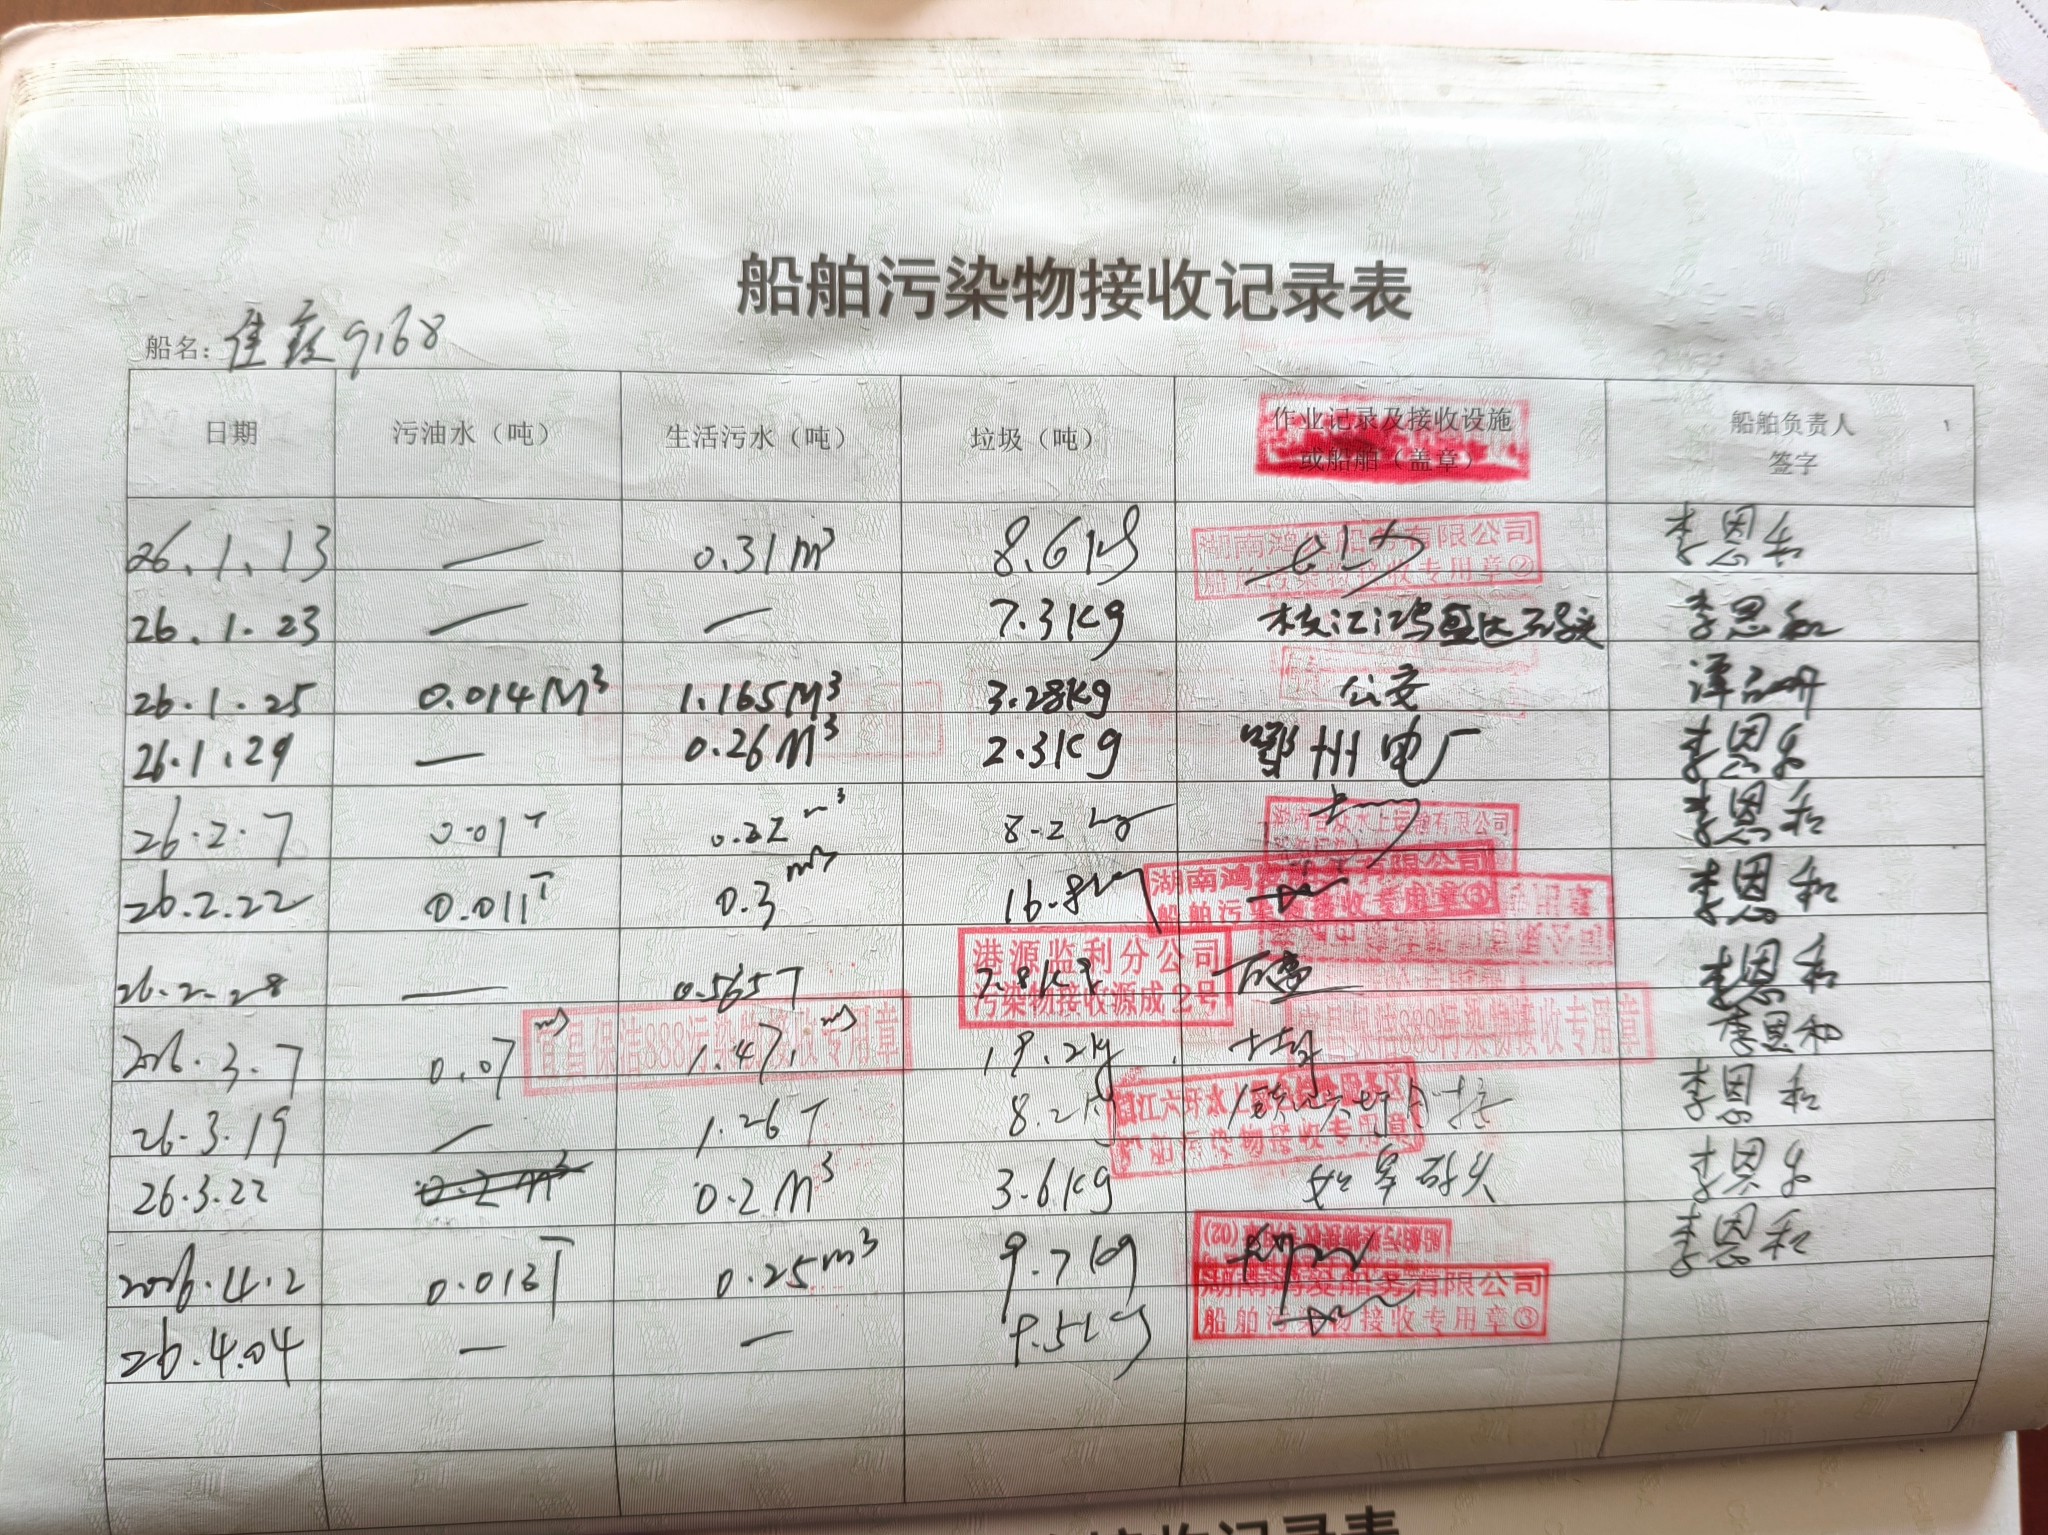 船舶污染物接收记录表
船名: 佳 9168
日期 污油水（吨） 生活污水（吨） 垃圾（吨） 作业记录及接收设施或船舶（盖章） 船舶负责人签字
26.1.13 — 0.31m³ 8.6kg 湖南鸿 船务有限公司 船舶污染物接收专用章② 李恩和
26.1.23 — — 7.3kg 枝江鸿盛达码头 李恩和
26.1.25 0.014M³ 1.165M³ 3.28kg 公安 谭
26.1.29 — 0.26M³ 2.3kg 鄂州电厂 李恩和
26.2.7 0.01T 0.22m³ 8.2kg 水上运输有限公司 李恩和
26.2.22 0.011T 0.3m³ 16.8kg 湖南鸿 有限公司 船舶污染物接收专用章③ 李恩和
26.2.28 — 0.565T 7.8kg 港源监利分公司 污染物接收源成2号 李恩和
2026.3.7 0.07m³ 1.47m³ 19.2kg 宜昌保洁888污染物接收专用章 宜昌保洁888污染物接收专用章 李恩和
26.3.19 — 1.26T 8.2kg 船舶污染物接收专用章 李恩和
26.3.22 0.2m³ 0.2M³ 3.6kg 码头 李恩和
2026.4.2 0.013T 0.25m³ 9.7kg (02) 李恩和
26.4.04 — — 9.5kg 湖南鸿凌船务有限公司 船舶污染物接收专用章③
接收记录表